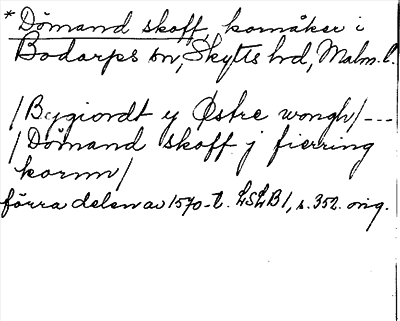 *Dömand skoff, kornåker i
Bodarps sn, Skytts hd, Malm. l.
/Bygiordt y Østre wongh/---
/Dömand skoff j fierring
kornn/
förra delen av 1570-t. LSLB1, s. 352. orig.